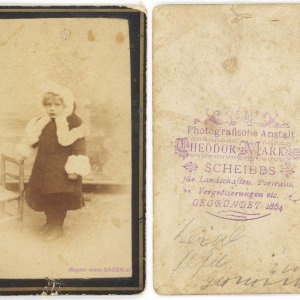 Repro: www.SAGEN.at
Photografische Anstalt
THEODOR MARK
SCHEIBBS
für Landschaften, Portraits,
Vergrösserungen etc.
GEGRÜNDET 1864